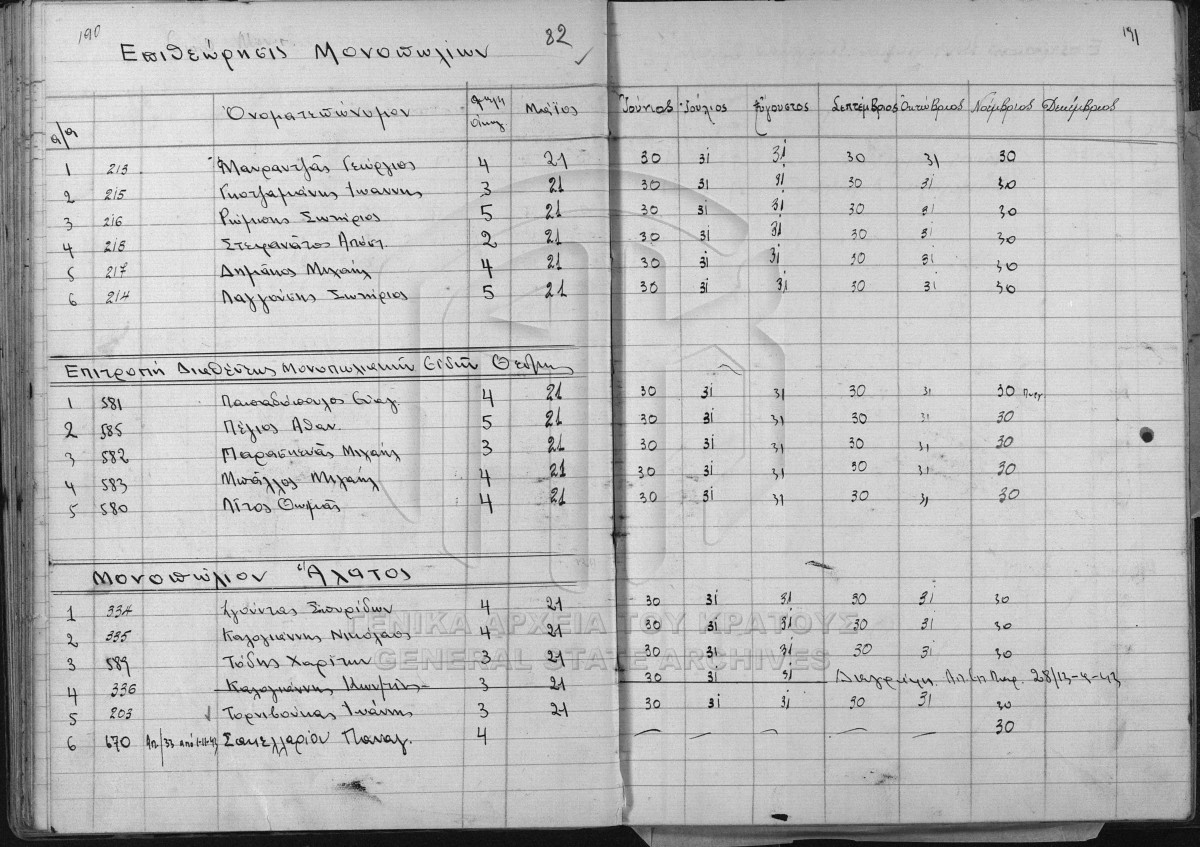 190 82 191
Επιθεώρησις Μονοπωλίων
α/α Ὀνοματεπώνυμον Μάϊος Ἰούνιος Ἰούλιος Αὔγουστος Σεπτέμβριος Οκτώβριος Νοέμβριος Δεκέμβριος
1 213 Μαυραντζᾶς Γεώργιος 4 21 30 31 31 30 31 30
2 215 Γκοτζαμάνης Ἰωάννης 3 21 30 31 31 30 31 30
3 216 Ρώμσης Σωτήριος 5 21 30 31 31 30 31 30
4 218 Στεφανάτος Αποστ. 2 21 30 31 31 30 31 30
5 217 Δημάκος Μιχαήλ 4 21 30 31 31 30 31 30
6 214 Λαγγούσης Σωτήριος 5 21 30 31 31 30 31 30
Επιτροπή Διαθέσεως Μονοπωλιακῶν Ειδῶν Θεσ/κης
1 581 Παπαδόπουλος Ευαγ. 4 21 30 31 31 30 31 30
2 585 Πέγιος Αθαν. 5 21 30 31 31 30 31 30
3 582 Παρασκευᾶς Μιχαήλ 3 21 30 31 31 30 31 30
4 583 Μπάλλος Μιχαήλ 4 21 30 31 31 30 31 30
5 580 Λίτος Θωμᾶς 4 21 30 31 31 30 31 30
Μονοπώλιον Ἅλατος
1 334 Σπυρίδων 4 21 30 31 31 30 31 30
2 335 Καλογιάννης Νικόλαος 4 21 30 31 31 30 31 30
3 589 Τόδης Χαρίτων 3 21 30 31 31 30 31 30
4 336 Καλογιάννης 3 21 30 31 31 Διαγράφη
5 203 Τορνιβούκας Ἰωάννης 3 21 30 31 31 30 31 30
6 670 Σακελλαρίου Παναγ. 4 30
ΓΕΝΙΚΑ ΑΡΧΕΙΑ ΤΟΥ ΚΡΑΤΟΥΣ
GENERAL STATE ARCHIVES